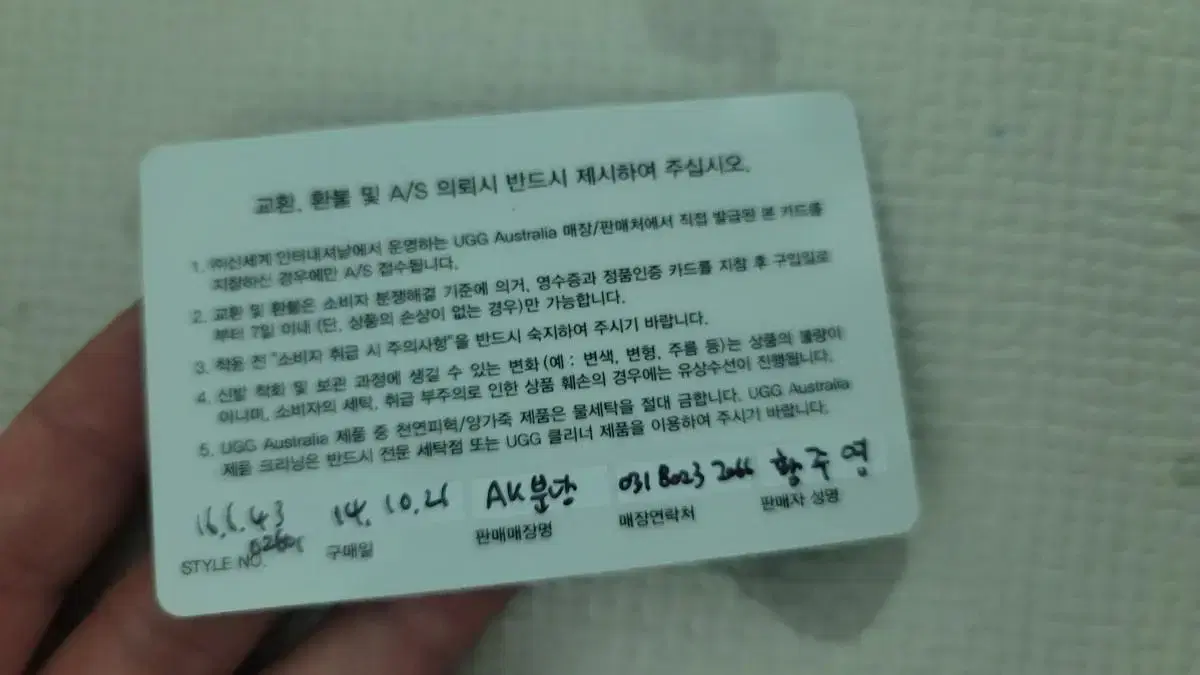 교환, 환불 및 A/S 의뢰시 반드시 제시하여 주십시오.
1. ㈜신세계 인터내셔날에서 운영하는 UGG Australia 매장/판매처에서 직접 발급된 본 카드를
지참하신 경우에만 A/S 접수됩니다.
2. 교환 및 환불은 소비자 분쟁해결 기준에 의거, 영수증과 정품인증 카드를 지참 후 구입일로
부터 7일 이내 (단, 상품의 손상이 없는 경우)만 가능합니다.
3. 착용 전 "소비자 취급 시 주의사항"을 반드시 숙지하여 주시기 바랍니다.
4. 신발 착화 및 보관 과정에 생길 수 있는 변화(예 : 변색, 변형, 주름 등)는 상품의 불량이
아니며, 소비자의 세탁, 취급 부주의로 인한 상품 훼손의 경우에는 유상수선이 진행됩니다.
5. UGG Australia 제품 중 천연피혁/양가죽 제품은 물세탁을 절대 금합니다. UGG Australia
제품 크리닝은 반드시 전문 세탁점 또는 UGG 클리너 제품을 이용하여 주시기 바랍니다.
16.6.43 14.10.21 AK분당 031 8023 2066 황주영
STYLE NO. 구매일 판매매장명 매장연락처 판매자 성명